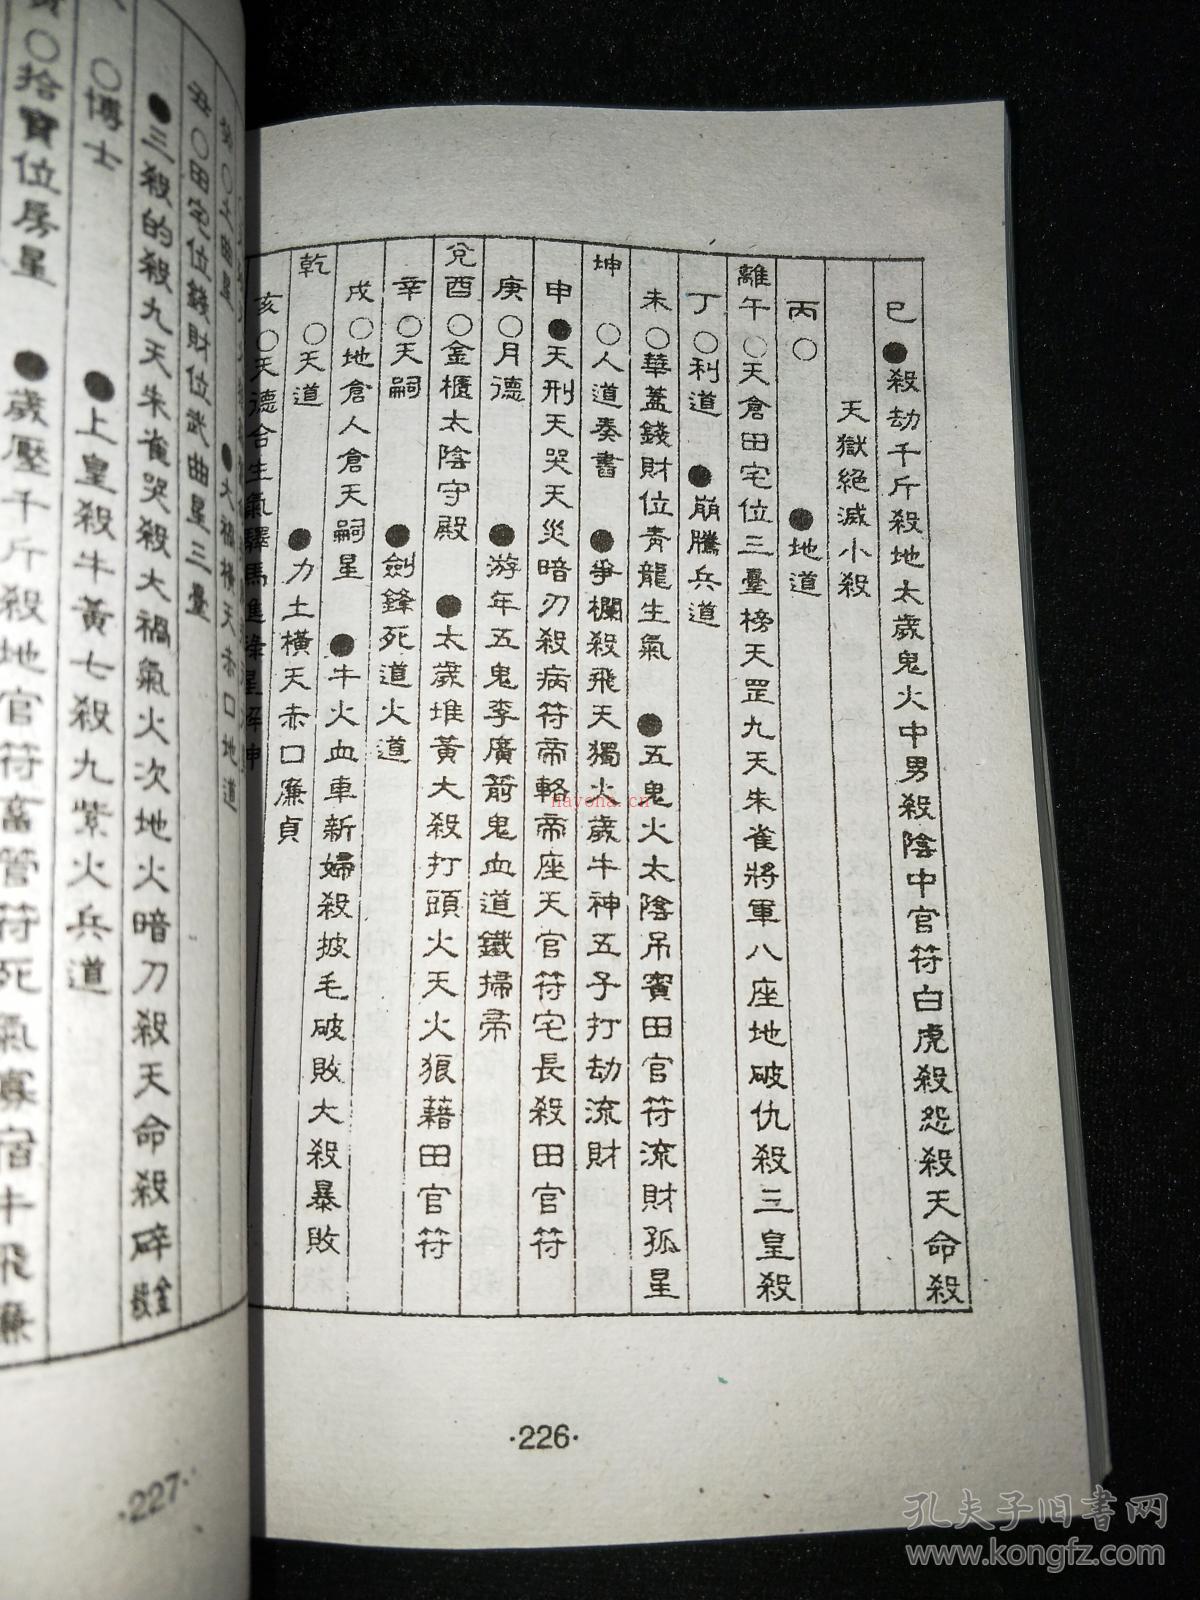 巳●殺劫千斤殺地太歲鬼火中男殺陰中官符白虎殺怨殺天命殺
天獄絕滅小殺
丙○ ●地道
離午○天倉田宅位三臺榜天罡九天朱雀將軍八座地破仇殺三皇殺
丁○利道 ●崩騰兵道
未○華蓋錢財位青龍生氣 ●五鬼火太陰吊賓田官符流財孤星
坤 ○人道奏書 ●爭欄殺飛天獨火歲牛神五子打劫流財
申●天刑天哭天災暗刃殺病符帝輅帝座天官符宅長殺田官符
庚○月德 ●游年五鬼李廣箭鬼血道鐵掃帚
兌酉○金櫃太陰守殿 ●太歲堆黃大殺打頭火天火狼藉田官符
辛○天嗣 ●劍鋒死道火道
戌○地倉人倉天嗣星 ●牛火血車新婦殺披毛破敗大殺暴敗
乾 ○天道 ●力士橫天赤口廉貞
亥○天德合生氣驛馬進祿星解神
·226·
癸○土曲星 ●大禍橫天赤口地道
丑○田宅位錢財位武曲星三臺
●三殺的殺九天朱雀哭殺大禍氣火次地火暗刀殺天命殺碎金殺
○博士 ●上皇殺牛黃七殺九紫火兵道
寅○拾寶位房星 ●歲壓千斤殺地官符畜管符死氣寡宿牛飛廉
·227·
hayona.cn
孔夫子旧书网
www.kongfz.com